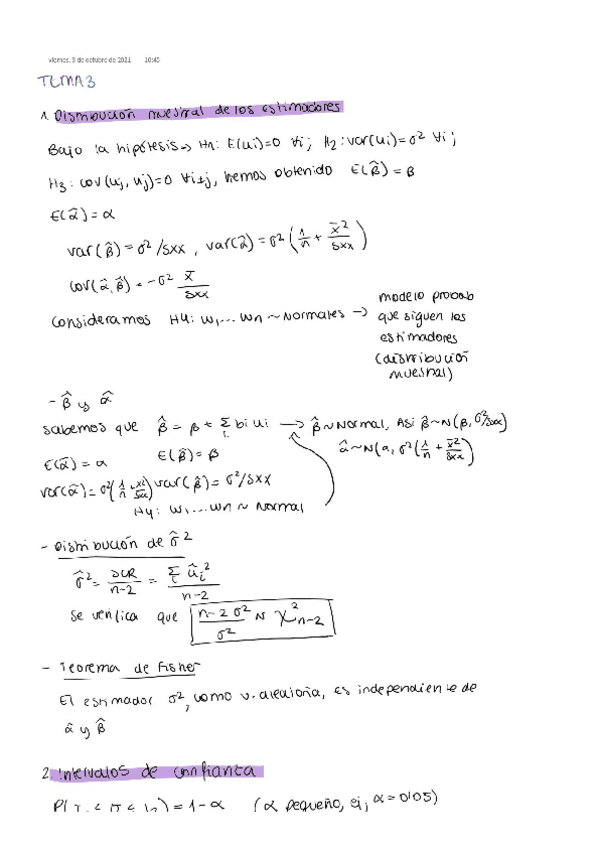 viernes, 3 de octubre de 2021 10:45
TEMA 3
1. Distribución muestral de los estimadores
Bajo la hipótesis → H1: E(ui)=0 ∀i; H2: var(ui)=σ² ∀i;
H3: cov(uj, uj)=0 ∀i≠j, hemos obtenido E(β̂) = β
E(α̂) = α
var(β̂) = σ²/sxx, var(α̂) = σ² (1/n + x̄²/sxx)
cov(α̂, β̂) = -σ² x̄/sxx
Consideramos H4: u1...un ~ Normales → modelo probab
que siguen los
estimadores
(distribución
muestral)
- β̂ y α̂
sabemos que β̂ = β + Σi bi ui → β̂ ~ Normal, Así β̂ ~ N(β, σ²/sxx)
E(α̂) = α E(β̂) = β α̂ ~ N(α, σ²(1/n + x̄²/sxx)
var(α̂) = σ²(1/n + x̄²/sxx) var(β̂) = σ²/sxx
H4: u1...un ~ Normal
- Distribución de σ̂²
σ̂² = SCR/n-2 = Σi ûi²/n-2
se verifica que n-2 σ²/σ² ~ χ²n-2
- Teorema de Fisher
El estimador σ², como v. aleatoria, es independiente de
α̂ y β̂
2. Intervalos de confianza
) = 1-α (α pequeño, ej, α = 0'05)